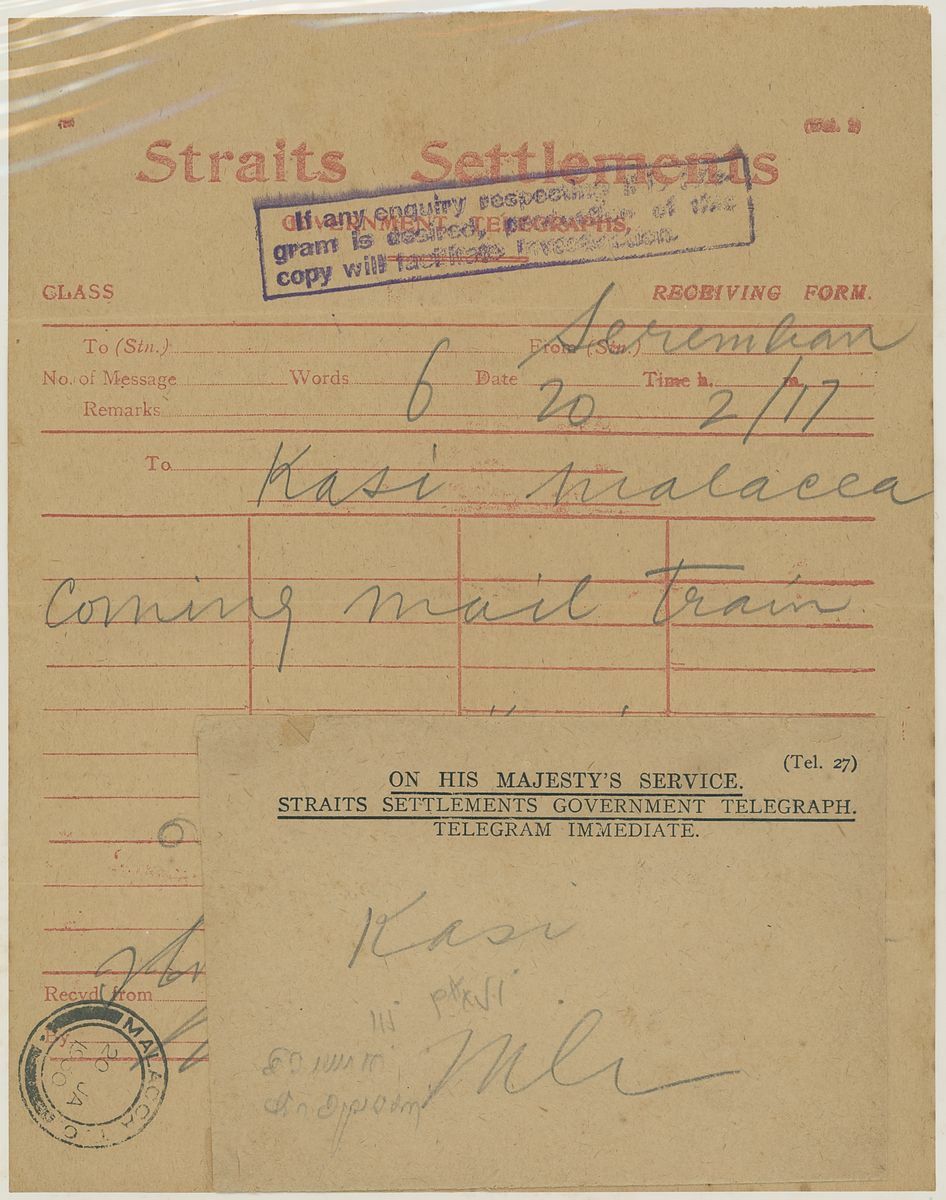 Straits Settlements
GOVERNMENT TELEGRAPHS,
If any enquiry respecting this Tele-
gram is desired, production of this
copy will facilitate investigation.
CLASS RECEIVING FORM.
To (Stn.) From (Stn.) Seremban
No. of Message Words 6 Date 20 Time h. 2/17 m.
Remarks
To Kasi Malacca
Coming mail train
(Tel. 27)
ON HIS MAJESTY'S SERVICE.
STRAITS SETTLEMENTS GOVERNMENT TELEGRAPH.
TELEGRAM IMMEDIATE.
Kasi
Recvd. from
By
MALACCA
20 JA